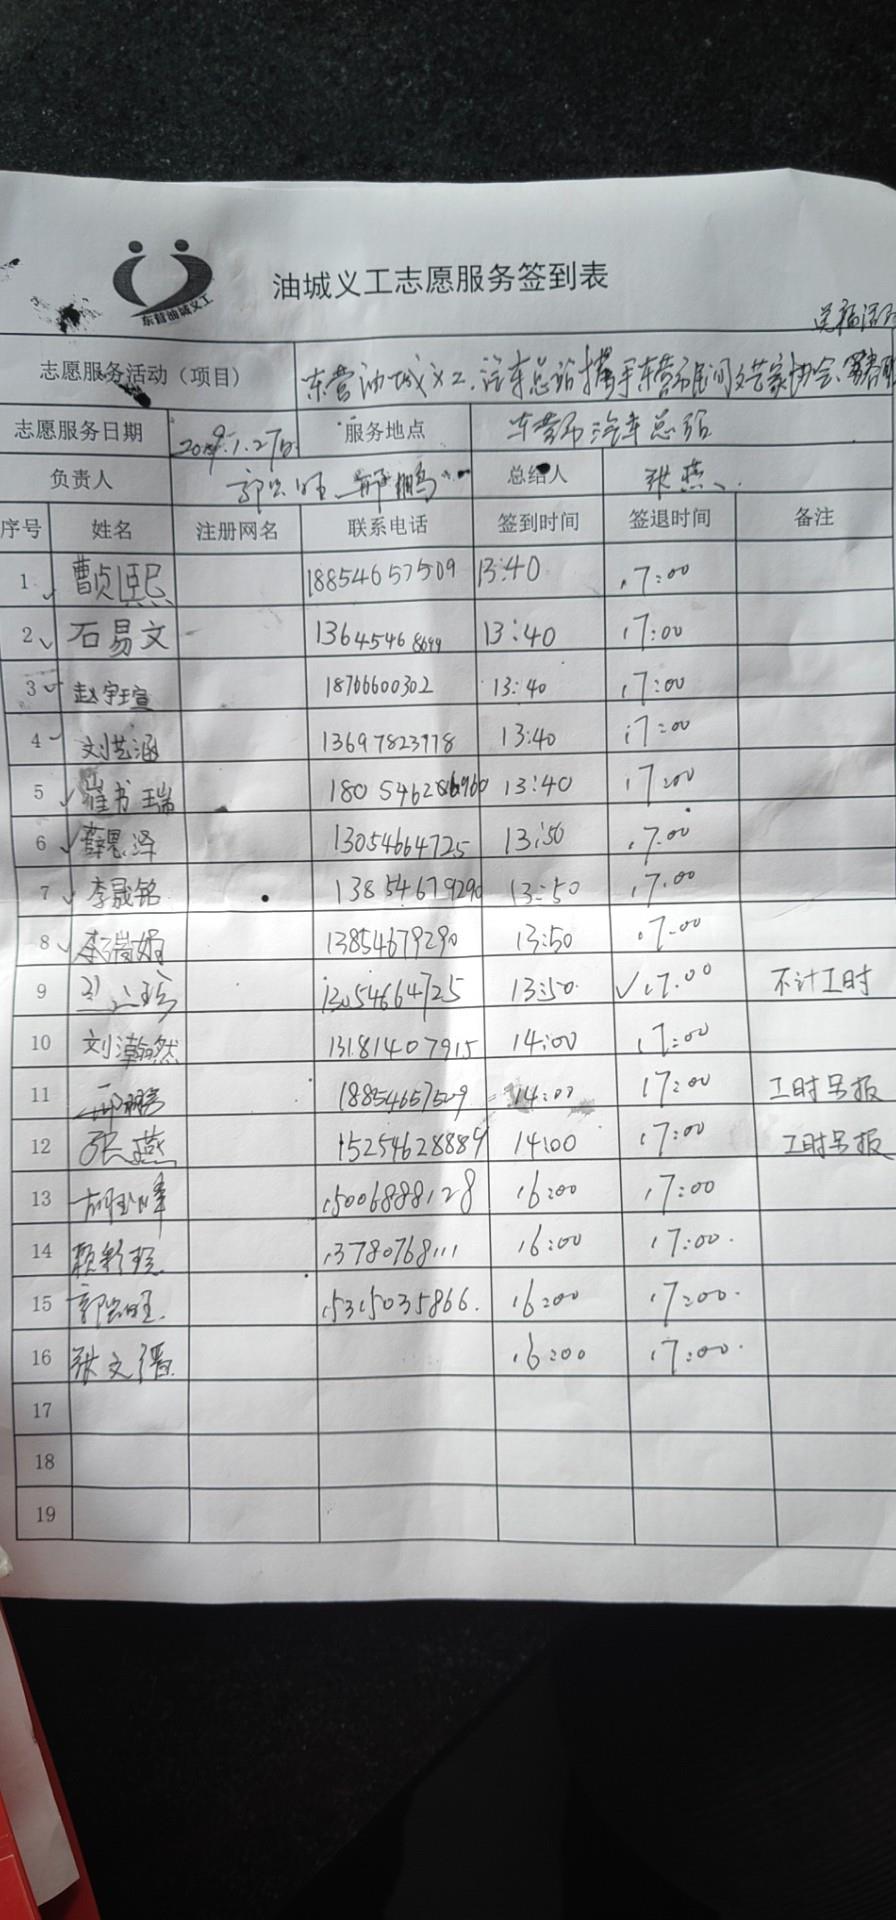 东营油城义工
油城义工志愿服务签到表
送福活动
志愿服务活动（项目） 东营油城义工、汽车总站携手东营市民间文艺家协会、写春联
志愿服务日期 2019.1.27日 服务地点 东营市汽车总站
负责人 郭宏旺 邢鹏 总结人 张燕
序号 姓名 注册网名 联系电话 签到时间 签退时间 备注
1 曹贞熙 18854657509 13:40 17:00
2 石易文 13645468699 13:40 17:00
3 赵宇瑄 18766600302 13:40 17:00
4 刘艺涵 13697823978 13:40 17:00
5 崔书瑞 13:40 17:00
6 薛思泽 13054664725 13:50 17:00
7 李晟铭 13854679290 13:50 17:00
8 李 娟 13854679290 13:50 17:00
9 13054664725 13:50 17:00 不计工时
10 刘瀚然 13181407915 14:00 17:00
11 邢鹏 18854657509 14:00 17:00 工时另报
12 张燕 15254628889 14:00 17:00 工时另报
13 15006888128 16:00 17:00
14 13780768111 16:00 17:00
15 郭宏旺 15315035866 16:00 17:00
16 张文 16:00 17:00
17
18
19